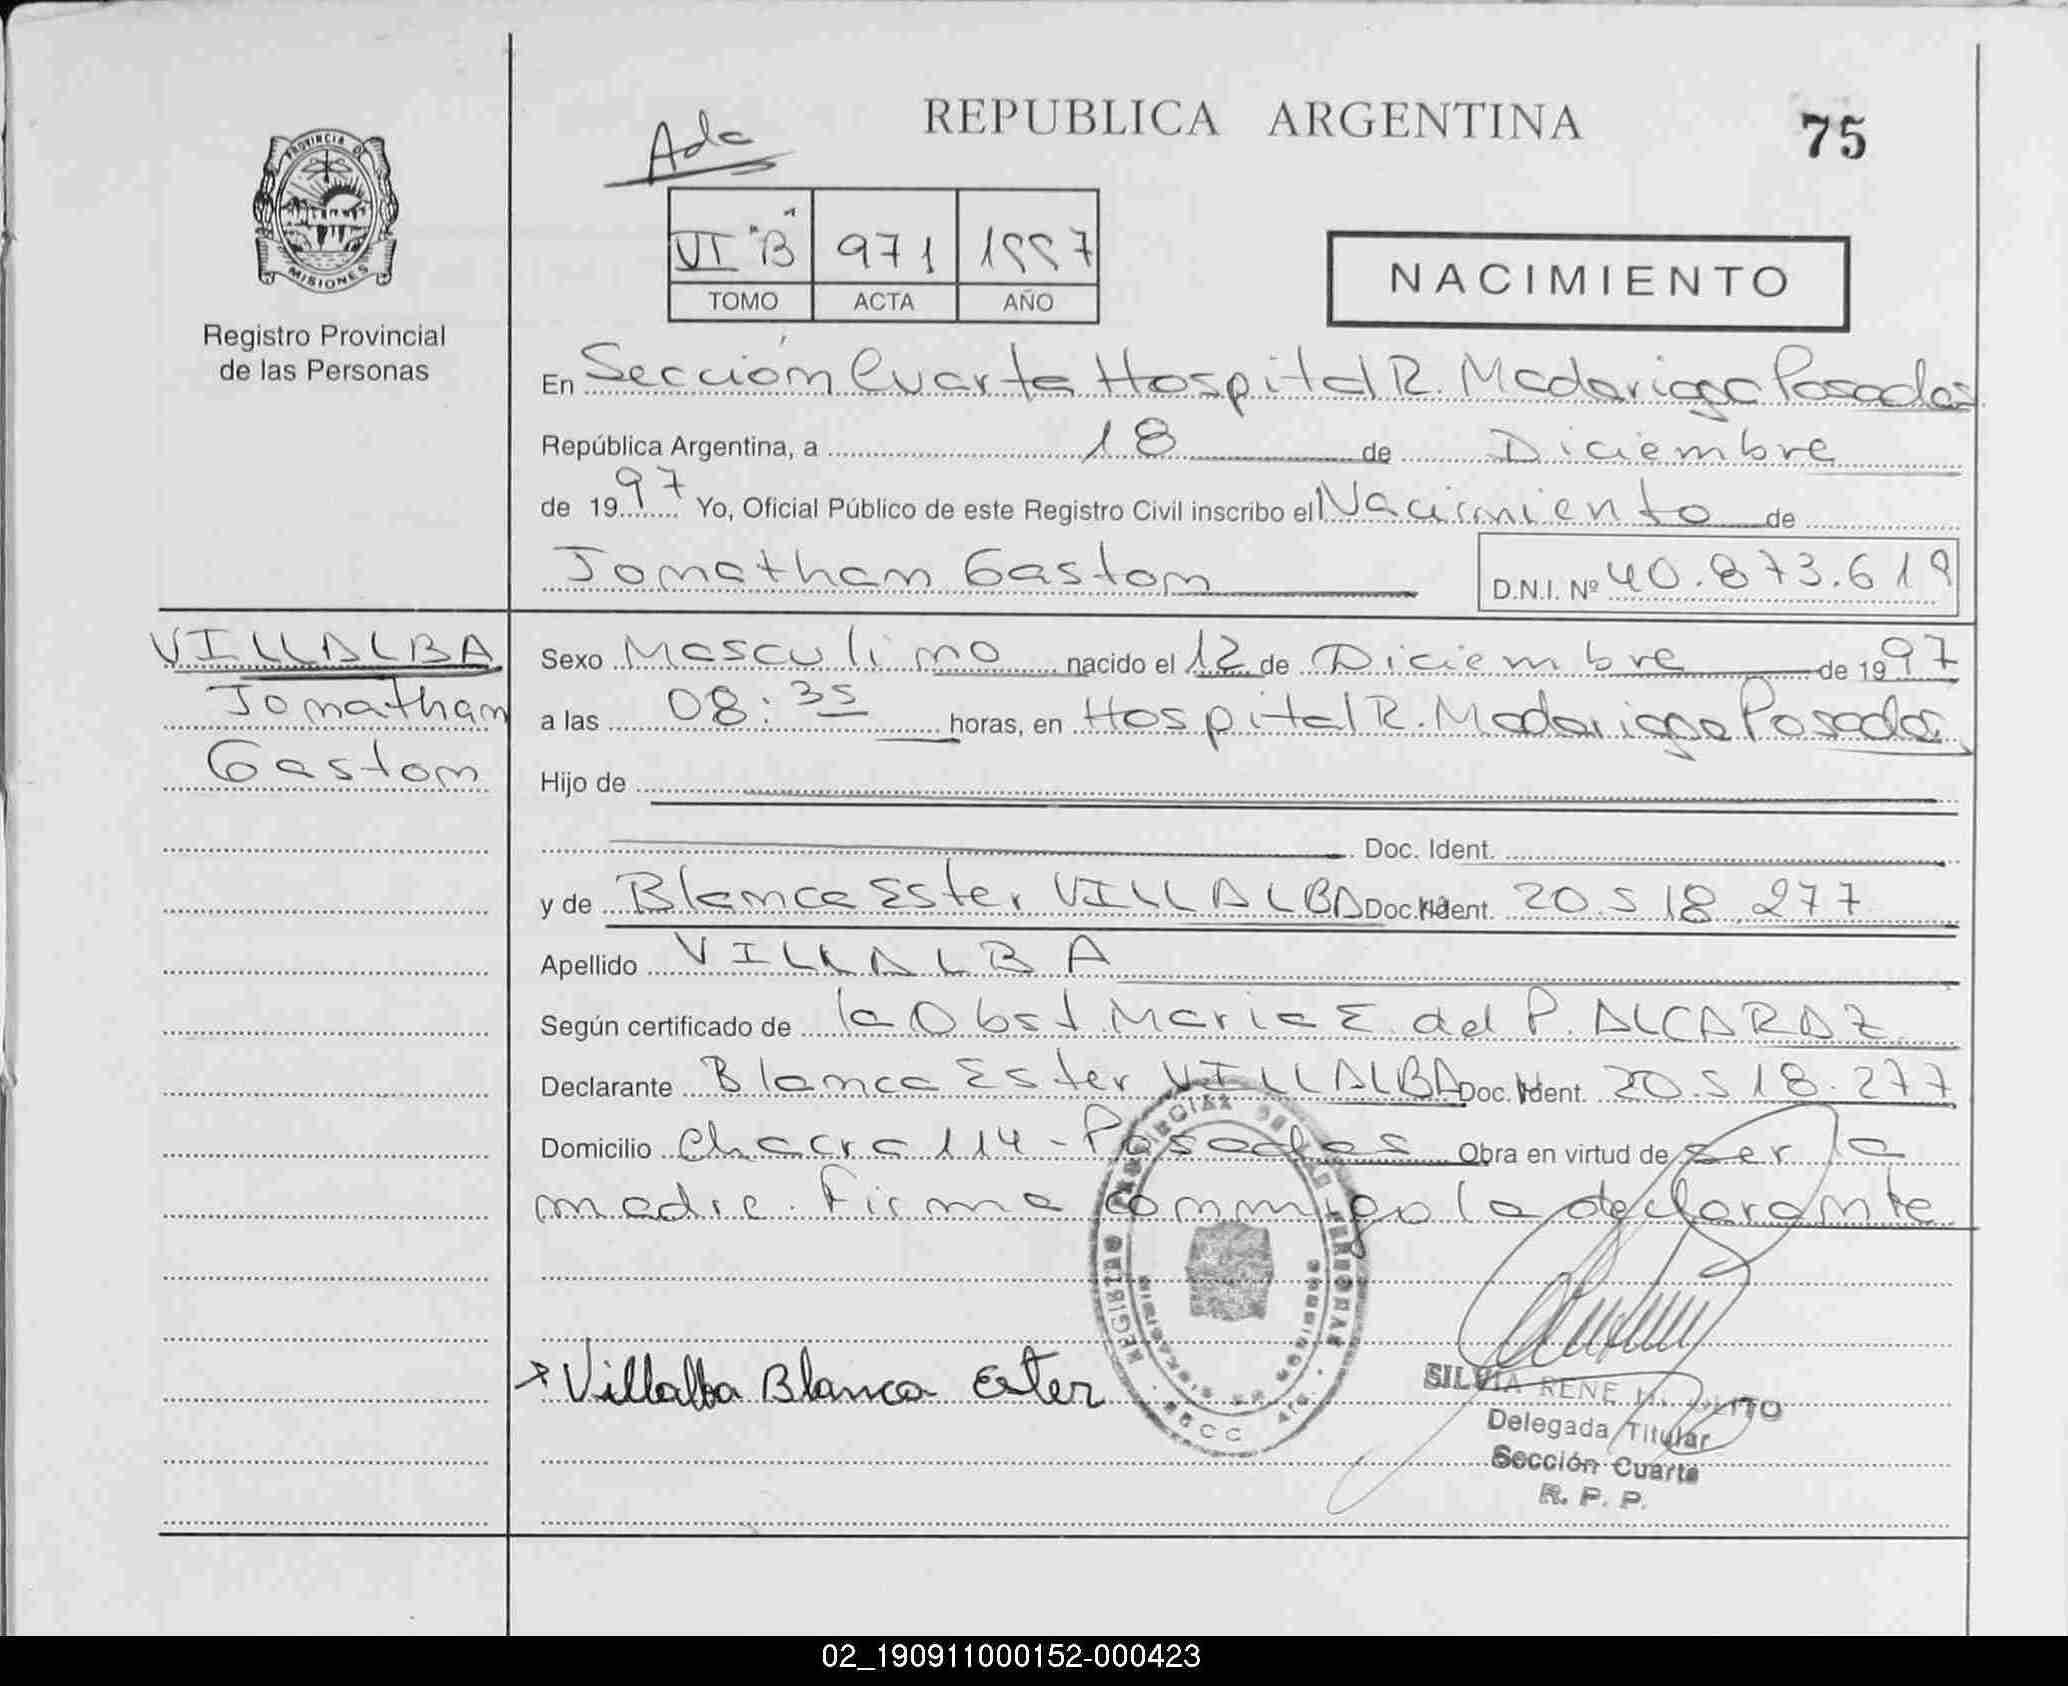 REPUBLICA ARGENTINA
75
Ada
PROVINCIA DE
MISIONES
VI "B" 971 1997
TOMO ACTA AÑO
NACIMIENTO
Registro Provincial
de las Personas
En Sección Cuarta Hospital R. Madariaga Posadas
República Argentina, a 18 de Diciembre
de 1997 Yo, Oficial Público de este Registro Civil inscribo el Nacimiento de
Jonathan Gaston D.N.I. Nº 40.873.619
VILLALBA
Jonathan
Gaston
Sexo Masculino nacido el 12 de Diciembre de 1997
a las 08:35 horas, en Hospital R. Madariaga Posadas
Hijo de
Doc. Ident.
y de Blanca Ester VILLALBA Doc. Ident. 20.518.277
Apellido VILLALBA
Según certificado de la Obst Maria E. del P. ALCARAZ
Declarante Blanca Ester VILLALBA Doc. Ident. 20.518.277
Domicilio Chacra 114 - Posadas Obra en virtud de ser la
madre. Firma conmigo la declarante
x Villalba Blanca Ester
REGISTRO PROVINCIAL DE LAS PERSONAS
SILVIA RENE
Delegada Titular
Sección Cuarta
R. P. P.
02_190911000152-000423